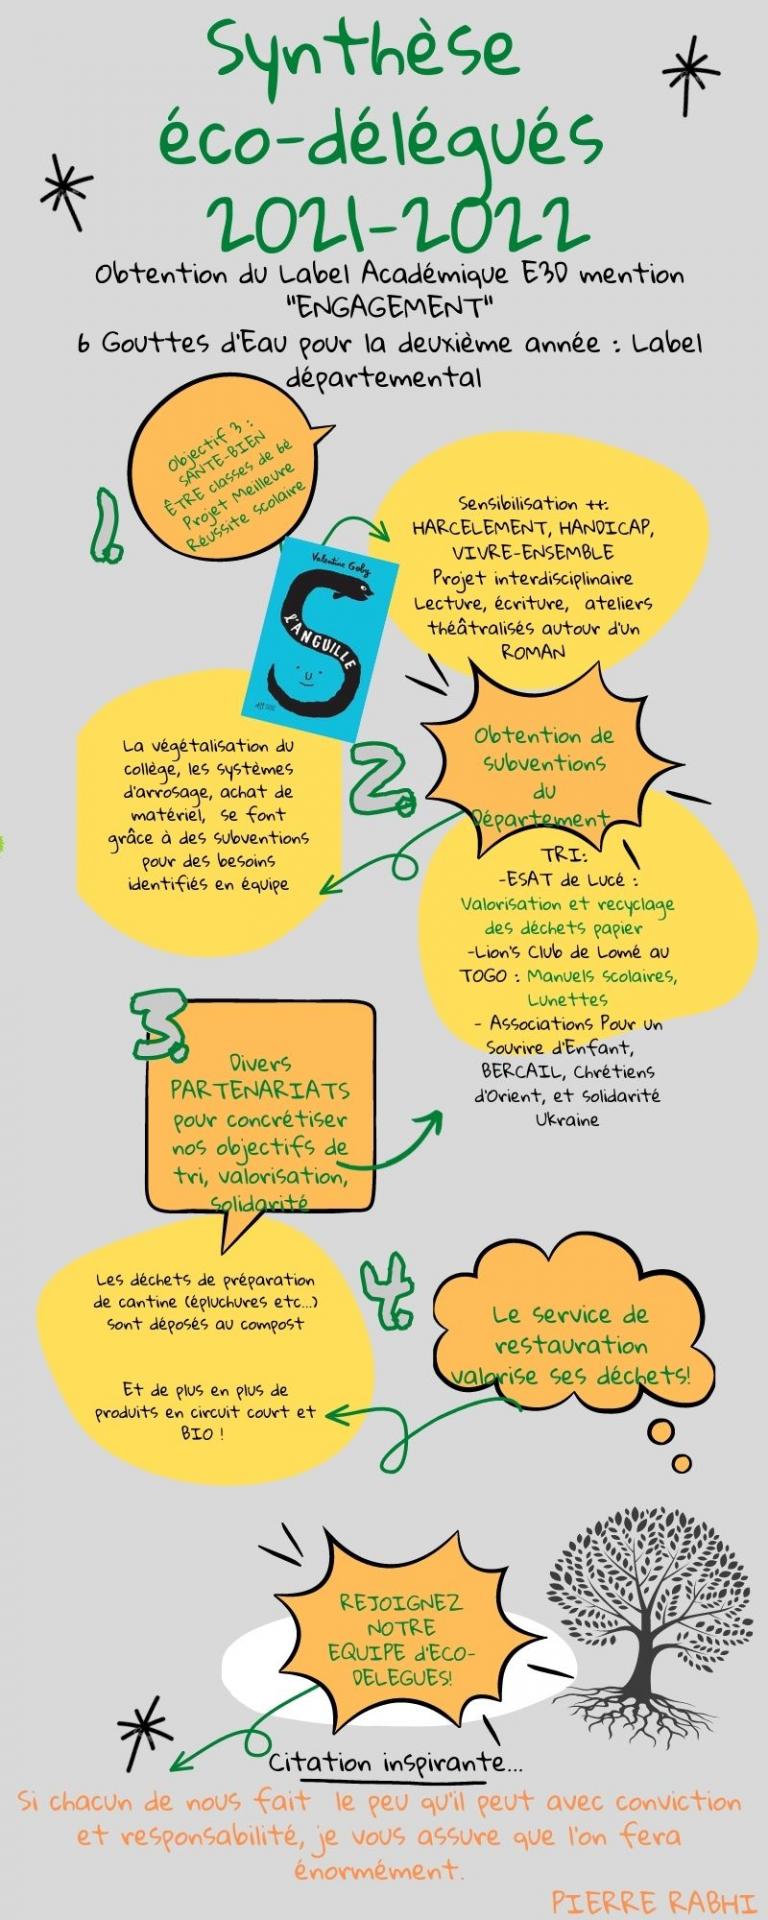 Synthèse
éco-délégués
2021-2022
Obtention du Label Académique E3D mention
"ENGAGEMENT"
6 Gouttes d'Eau pour la deuxième année : Label
départemental
1.
Objectif 3 :
SANTE-BIEN
ÊTRE classes de 6é
Projet Meilleure
Réussite scolaire
Valentine Goby
L'ANGUILLE
Sensibilisation ++:
HARCELEMENT, HANDICAP,
VIVRE-ENSEMBLE
Projet interdisciplinaire
Lecture, écriture, ateliers
théâtralisés autour d'un
ROMAN
2.
Obtention de
subventions
du
Département
La végétalisation du
collège, les systèmes
d'arrosage, achat de
matériel, se font
grâce à des subventions
pour des besoins
identifiés en équipe
TRI:
-ESAT de Lucé :
Valorisation et recyclage
des déchets papier
-Lion's Club de Lomé au
TOGO : Manuels scolaires,
Lunettes
- Associations Pour un
Sourire d'Enfant,
BERCAIL, Chrétiens
d'Orient, et Solidarité
Ukraine
3.
Divers
PARTENARIATS
pour concrétiser
nos objectifs de
tri, valorisation,
solidarité
4.
Le service de
restauration
valorise ses déchets!
Les déchets de préparation
de cantine (épluchures etc...)
sont déposés au compost
Et de plus en plus de
produits en circuit court et
BIO !
REJOIGNEZ
NOTRE
EQUIPE d'ECO-
DELEGUES!
Citation inspirante...
Si chacun de nous fait le peu qu'il peut avec conviction
et responsabilité, je vous assure que l'on fera
énormément.
PIERRE RABHI